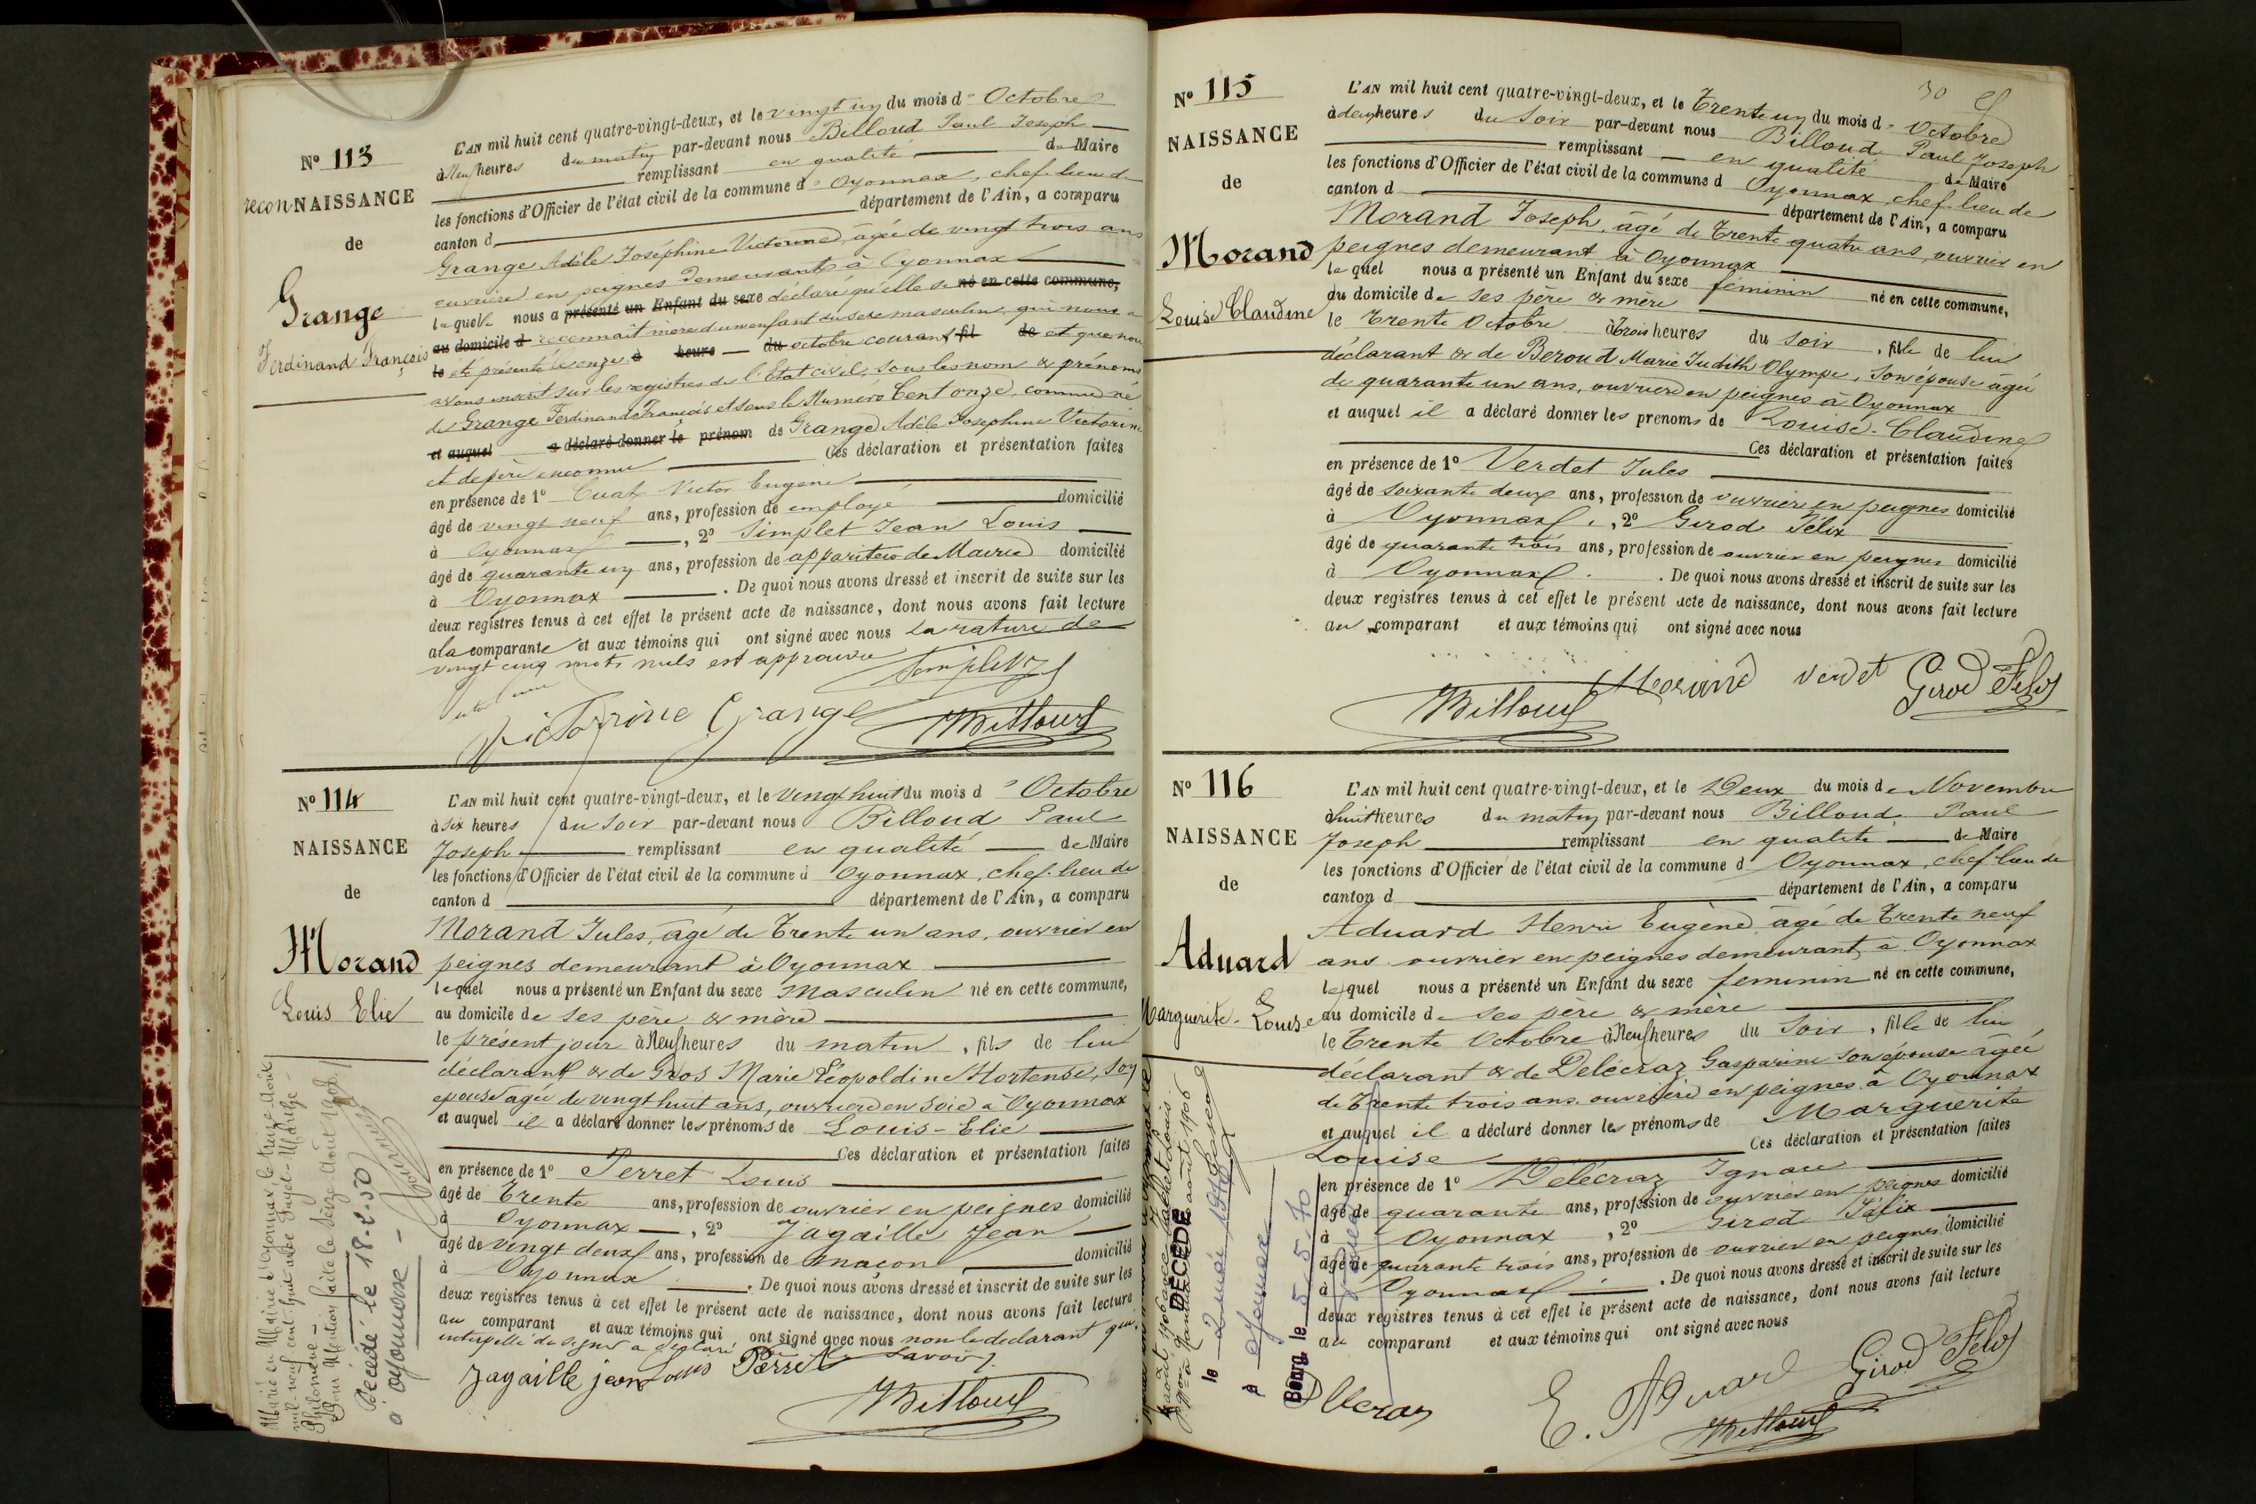 Nº 113
reconNAISSANCE
de
Grange
Ferdinand François
L'AN mil huit cent quatre-vingt-deux, et le vingt un du mois d'Octobre
à Neuf heures du matin par-devant nous Billoud Paul Joseph
remplissant en qualité de Maire
les fonctions d'Officier de l'état civil de la commune d'Oyonnax, chef-lieu de
canton d département de l'Ain, a comparu
Grange Adèle Joséphine Victorine, âgée de vingt trois ans
ouvrière en peignes demeurant à Oyonnax
laquelle nous a présenté un Enfant du sexe déclaré qu'elle se né en cette commune,
au domicile d reconnaît mère d'un enfant du sexe masculin, qui nous a
le été présenté le onze à heure du octobre courant fil de et que nous
avons inscrit sur les registres de l'Etat civil, sous les nom & prénoms
de Grange Ferdinand François et sous le Numéro Cent onze, comme né
et auquel a déclaré donner le prénom de Grange Adèle Josephine Victorine
et de père inconnu Ces déclaration et présentation faites
en présence de 1º Cuat Victor Eugène
âgé de vingt neuf ans, profession de employé domicilié
à Oyonnax, 2º Simplet Jean Louis
âgé de quarante un ans, profession de appariteur de Mairie domicilié
à Oyonnax. De quoi nous avons dressé et inscrit de suite sur les
deux registres tenus à cet effet le présent acte de naissance, dont nous avons fait lecture
a la comparante et aux témoins qui ont signé avec nous La rature de
vingt cinq mots nuls est approuvée
Simplet
Victorine Grange
Billoud
Nº 114
NAISSANCE
de
Morand
Louis Elie
L'AN mil huit cent quatre-vingt-deux, et le vingt huit du mois d'Octobre
à six heures du soir par-devant nous Billoud Paul
Joseph remplissant en qualité de Maire
les fonctions d'Officier de l'état civil de la commune d Oyonnax, chef-lieu de
canton d département de l'Ain, a comparu
Morand Jules, âgé de Trente un ans, ouvrier en
peignes demeurant à Oyonnax
lequel nous a présenté un Enfant du sexe Masculin né en cette commune,
au domicile de ses père & mère
le présent jour à Neuf heures du matin, fils de lui
déclarant & de Gros Marie Léopoldine Hortense, son
épouse âgée de vingt huit ans, ouvrière en soie à Oyonnax
et auquel il a déclaré donner les prénoms de Louis-Elie
Ces déclaration et présentation faites
en présence de 1º Perret Louis
âgé de Trente ans, profession de ouvrier en peignes domicilié
à Oyonnax, 2º Jagaille Jean
âgé de vingt deux ans, profession de maçon domicilié
à Oyonnax. De quoi nous avons dressé et inscrit de suite sur les
deux registres tenus à cet effet le présent acte de naissance, dont nous avons fait lecture
au comparant et aux témoins qui ont signé avec nous non le déclarant qui,
interpellé de signer a déclaré ne savoir.
Jagaille jean Louis Perret
Billoud
Marié en Mairie d'Oyonnax, le treize Août
mil-neuf cent-huit avec
Philomène -
Pour Mention faite le seize Août 1908
Décédé le 18-2-50
à Oyonnax -
Nº 115
NAISSANCE
de
Morand
Louise Claudine
30
L'AN mil huit cent quatre-vingt-deux, et le Trente un du mois d'Octobre
à deux heures du Soir par-devant nous Billoud Paul Joseph
remplissant en qualité de Maire
les fonctions d'Officier de l'état civil de la commune d Oyonnax, chef-lieu de
canton d département de l'Ain, a comparu
Morand Joseph, âgé de Trente quatre ans, ouvrier en
peignes demeurant à Oyonnax
lequel nous a présenté un Enfant du sexe féminin né en cette commune,
du domicile de ses père & mère
le Trente Octobre à Trois heures du soir, fille de lui
déclarant & de Beroud Marie Judith Olympe, son épouse âgée
de quarante un ans, ouvrière en peignes à Oyonnax
et auquel il a déclaré donner les prenoms de Louise-Claudine
Ces déclaration et présentation faites
en présence de 1º Verdet Jules
âgé de soixante deux ans, profession de ouvrier en peignes domicilié
à Oyonnax, 2º Girod Félix
âgé de quarante trois ans, profession de ouvrier en peignes domicilié
à Oyonnax. De quoi nous avons dressé et inscrit de suite sur les
deux registres tenus à cet effet le présent acte de naissance, dont nous avons fait lecture
au comparant et aux témoins qui ont signé avec nous
Morand Verdet Girod Félix
Billoud
Nº 116
NAISSANCE
de
Aduard
Marguerite-Louise
L'AN mil huit cent quatre-vingt-deux, et le Deux du mois de Novembre
à huit heures du matin par-devant nous Billoud Paul
Joseph remplissant en qualité de Maire
les fonctions d'Officier de l'état civil de la commune d Oyonnax, chef-lieu de
canton d département de l'Ain, a comparu
Aduard Henri Eugène, âgé de Trente neuf
ans ouvrier en peignes demeurant à Oyonnax
lequel nous a présenté un Enfant du sexe feminin né en cette commune,
au domicile de ses père & mère
le Trente Octobre à Neuf heures du Soir, fille de lui
déclarant & de Delécraz Gasparine son épouse âgée
de Trente trois ans ouvrière en peignes à Oyonnax
et auquel il a déclaré donner les prénoms de Marguerite
Louise Ces déclaration et présentation faites
en présence de 1º Delécraz Ignace
âgé de quarante ans, profession de ouvrier en peignes domicilié
à Oyonnax, 2º Girod Félix
âgé de quarante trois ans, profession de ouvrier en peignes domicilié
à Oyonnax. De quoi nous avons dressé et inscrit de suite sur les
deux registres tenus à cet effet le présent acte de naissance, dont nous avons fait lecture
au comparant et aux témoins qui ont signé avec nous
E. Aduard Girod Félix
Billoud
DÉCÉDÉ
le 2 mai
à Oyonnax
Bourg, le 5.5.70